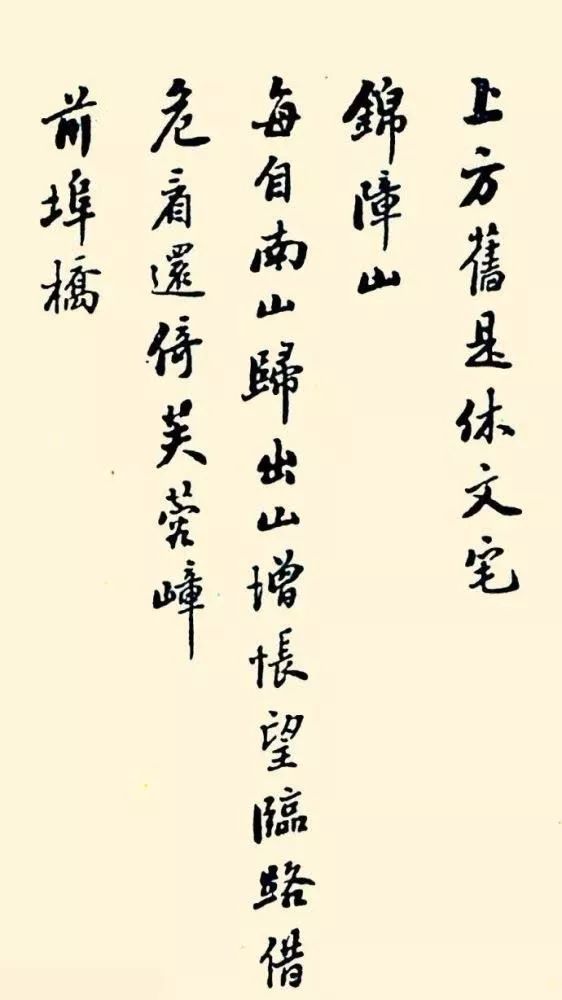 上方舊是休文宅
錦障山
每自南山歸出山增悵望臨路借
危看還倚芙蓉嶂
前埠橋